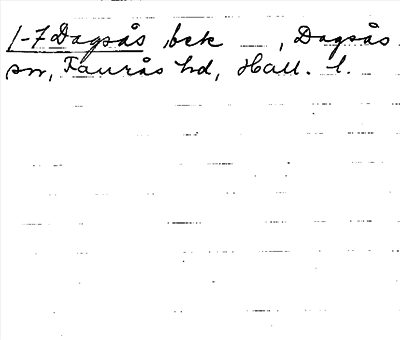 1-7 Dagsås, bck , Dagsås
sn, Faurås hd, Hall. l.